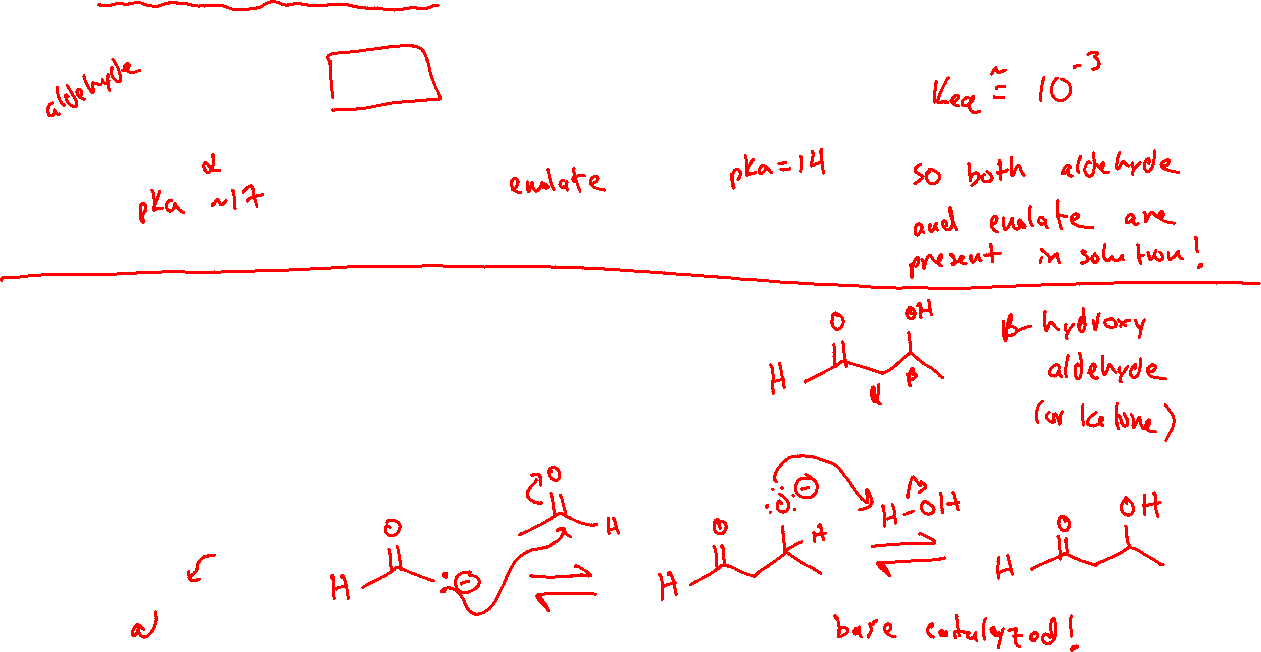 aldehyde
Keq ≅ 10⁻³
α
pKa ~17
enolate
pKa = 14
so both aldehyde
and enolate are
present in solution!
O OH
H
α β
β-hydroxy
aldehyde
(or ketone)
O
H
O
H :⊖
:Ö:⊖
O
H
H
H-OH
O OH
H
base catalyzed!